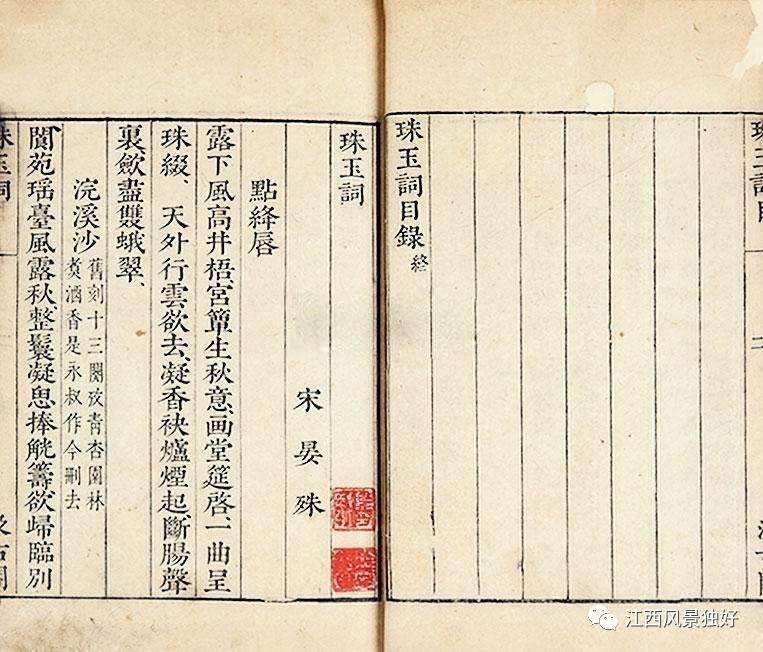 珠玉詞目
珠玉詞目錄終
珠玉詞
宋晏殊
點絳唇
露下風高井梧宮簟生秋意、画堂筵啓一曲呈
珠綴、天外行雲欲去、凝香袂爐煙起斷腸聲
裏、歛盡雙蛾翠、
浣溪沙舊刻十三闋攷青杏園林
煑酒香是永叔作今刪去
閬苑瑶臺風露秋、整鬟凝思捧觥籌欲歸臨别
珠玉詞
汲古閣
江西风景独好